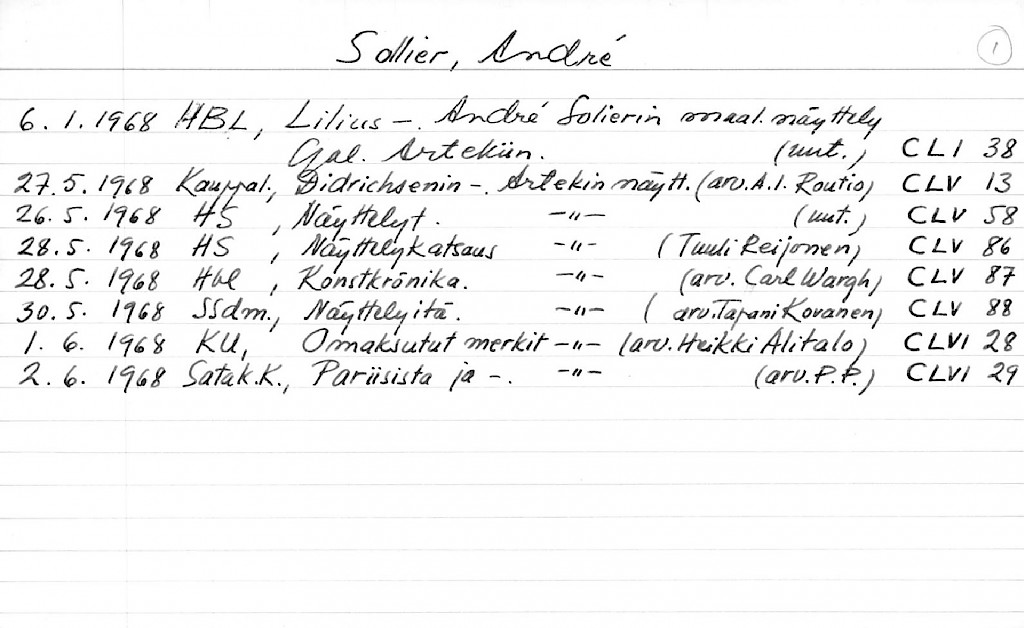 Sollier, André 1
6.1.1968 HBL, Lilius -. André Solierin maal. näyttely
Gal. Artekiin. (uut.) CLI 38
27.5.1968 Kauppal., Didrichsenin -. Artekin näytt. (arv. A.I. Routio) CLV 13
26.5.1968 HS, Näyttelyt. -"- (uut.) CLV 58
28.5.1968 HS, Näyttelykatsaus -"- (Tuuli Reijonen) CLV 86
28.5.1968 Hbl, Konstkrönika. -"- (arv. Carl Wargh) CLV 87
30.5.1968 SSdm., Näyttelyitä. -"- (arv. Tapani Kovanen) CLV 88
1.6.1968 KU, Omaksutut merkit -"- (arv. Heikki Alitalo) CLVI 28
2.6.1968 Satak.K., Pariisista ja -. -"- (arv. P.P.) CLVI 29